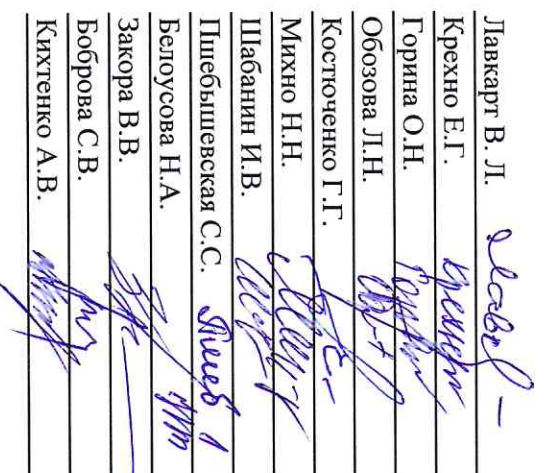 Лавкарт В. Л.
Крехно Е.Г.
Горина О.Н.
Обозова Л.Н.
Костюченко Г.Г.
Михно Н.Н.
Шабанин И.В.
Пшебышевская С.С.
Белоусова Н.А.
Закора В.В.
Боброва С.В.
Кихтенко А.В.